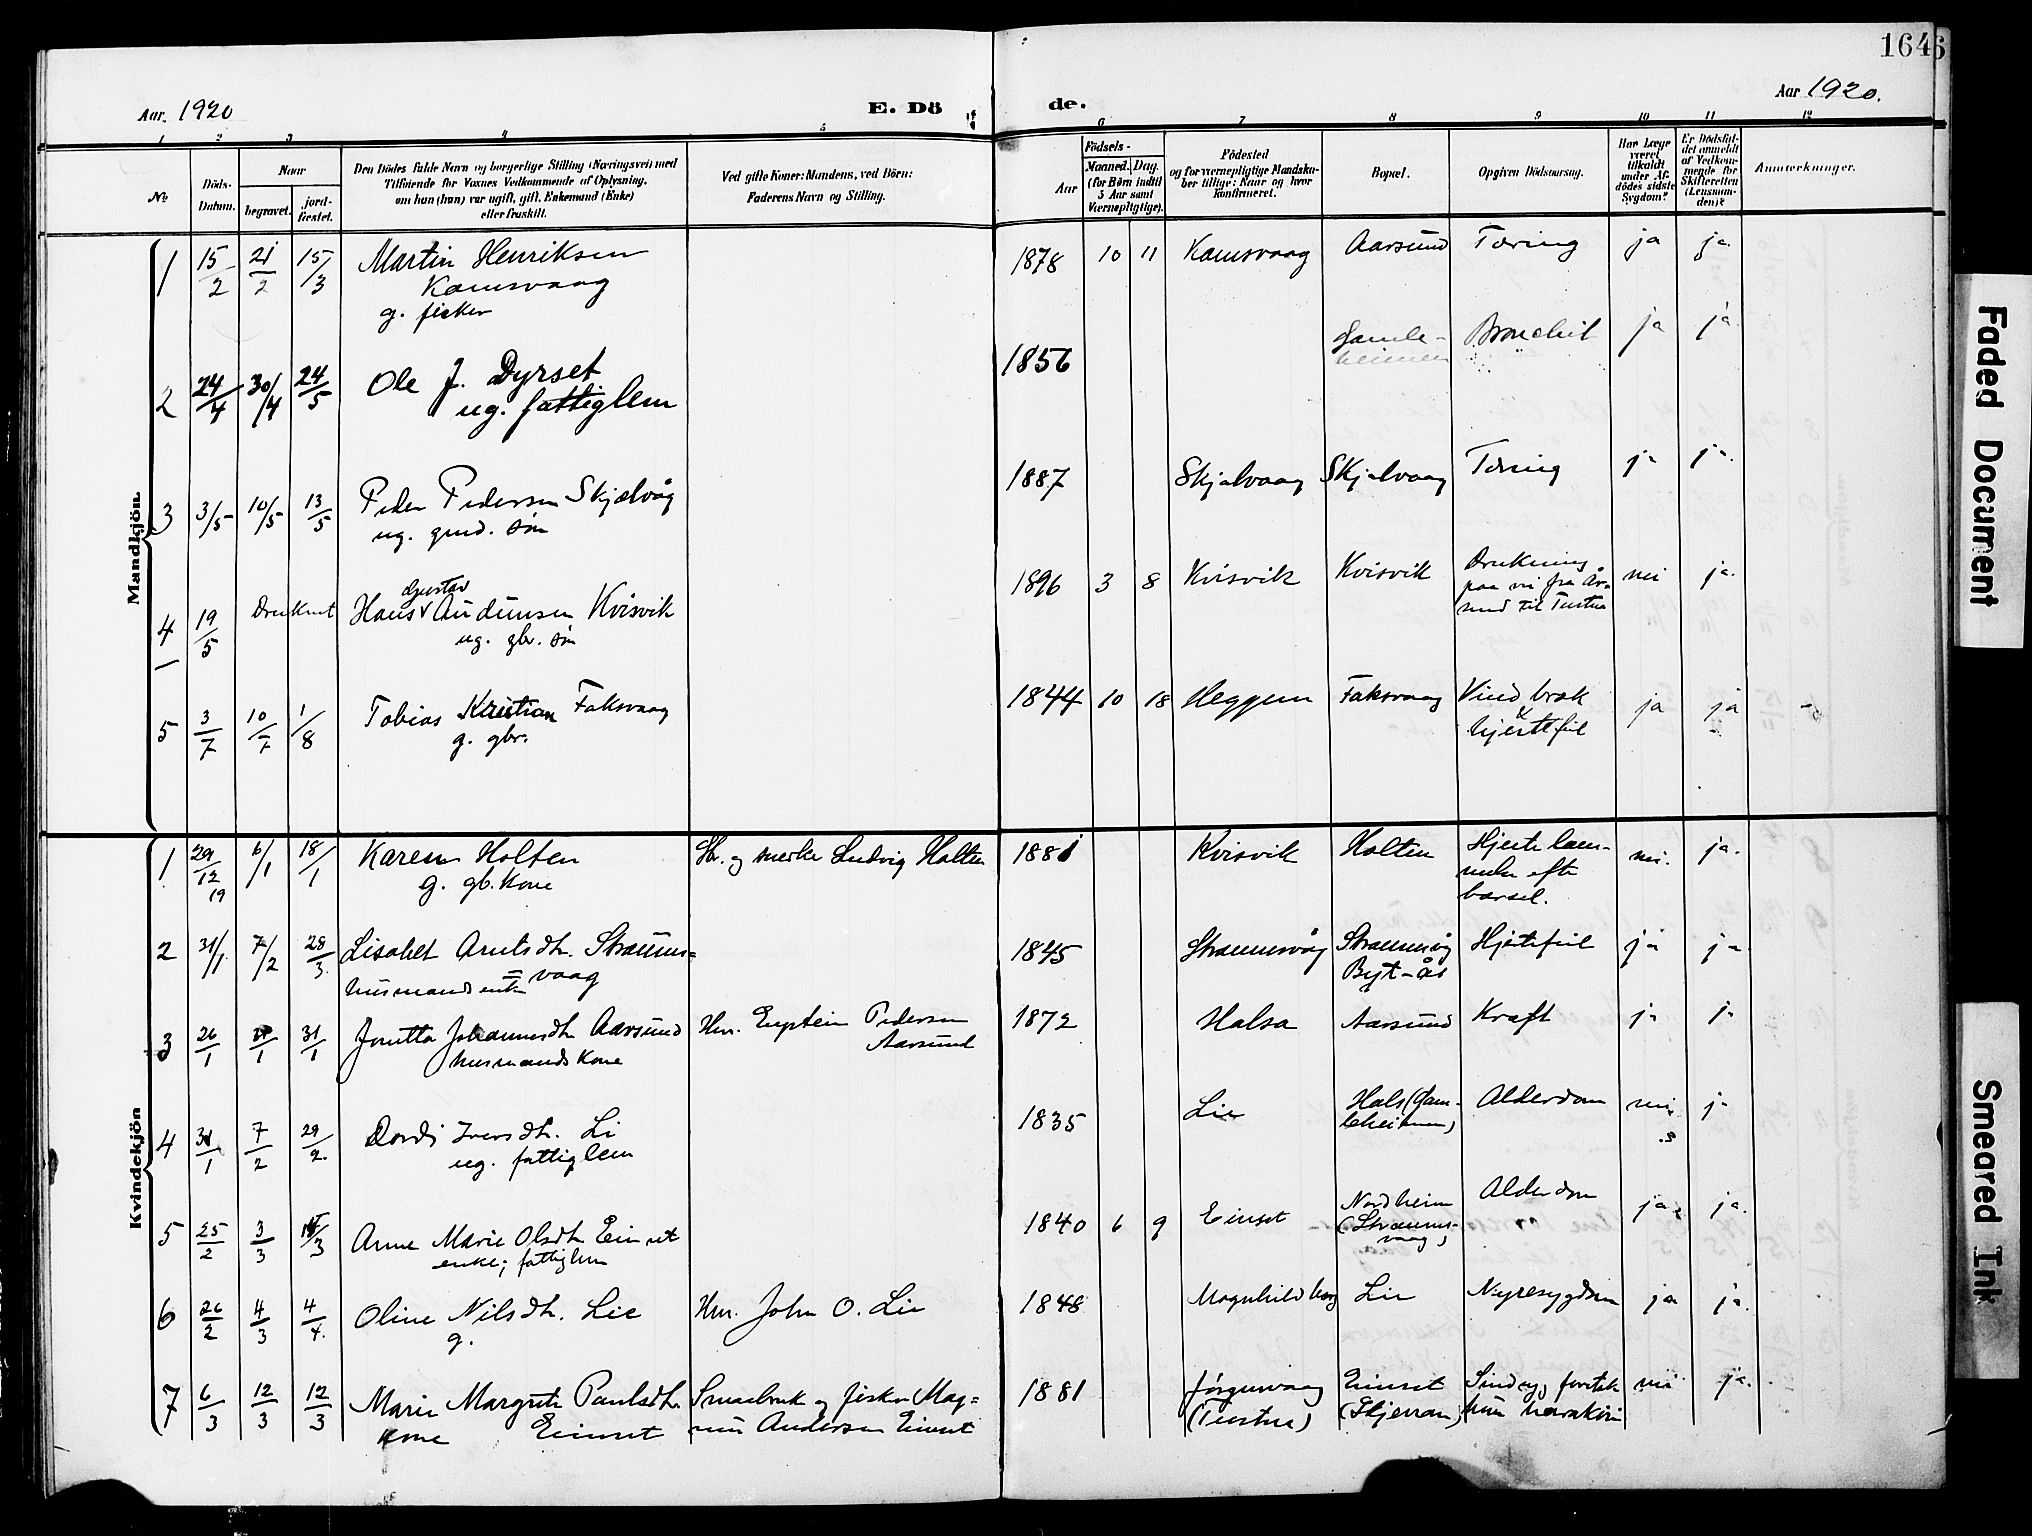 1646
Aar. 1920
E. Dö
de.
Aar 1920.
1 2 3 4 5
6 7 8 9 10 11 12
No.
Döds-
Datum.
Naar
begravet.
jord-
fæstet.
Den Dödes fulde Navn og borgerlige Stilling (Næringsvei) med
Tilföiende for Voxnes Vedkommende af Oplysning,
om han (hun) var ugift, gift, Enkemand (Enke)
eller fraskilt.
Ved gifte Koner: Mandens, ved Börn:
Faderens Navn og Stilling.
Födsels-
Aar
Maaned. Dag.
(for Børn indtil
5 Aar samt
Værnepligtige).
Födested
og for værnepligtige Mandska-
ber tillige: Naar og hvor
konfirmeret.
Bopæl.
Opgiven Dödsaarsag.
Har Læge
været
tilkaldt
under Af-
dödes sidste
Sygdom?
Er Dödsfal-
det anmeldt
af Vedkom-
mende for
Skifteretten
(Lensman-
den)?
Anmærkninger.
Mandkjön.
1 15/2 21/2 15/3 Martin Henriksen 1878 10 11 Kamsvaag Aarsund Tæring ja ja.
Kamsvaag
g. fisker
2 24/4 30/4 24/5 Ole J. Dyrset 1856 Gamle- Bronchit ja ja
heimen
ug. fattiglem
3 3/5 10/5 13/5 Peder Pedersen Skjelvåg 1887 Skjelvaag Skjelvaag Tæring ja ja.
ug. gmd. søn
4 19/5 Druknet Gustav
Hans Audunsen Kvisvik 1896 3 8 Kvisvik Kvisvik Drukning nei ja.
paa vei fra År-
sund til Tustna
ug. gbr. søn
5 3/7 10/7 1/8 Tobias Kristian Faksvaag 1844 10 18 Heggem Faksvaag Vindbrok ja ja
& hjertefeil
g. gbr.
Kvindekjön
1 29/12 19 6/1 18/1 Karen Holten Gbr. og smed Ludvig Holten 1881 Kvisvik Holten Hjertelam- nei. ja.
melse efter
barsel.
g. gb. kone
2 31/1 7/2 28/3 Lisabet Arntsdtr. Straums= 1845 Straumsvåg Straumsvåg Hjertefeil ja ja
vaag
husmandsenke
3 26/1 31/1 Jonetta Johannesdtr Aarsund Hm. Eystein Pedersen 1872 Halsa Aarsund Kræft ja ja
Aarsund
husmandskone
4 31/1 7/2 29/2. Dordi Iversdtr. Li 1835 Lie Hals (Gam- Alderdom nei ja
leheimen)
ug. fattiglem
5 25/2 3/3 Anne Marie Olsdtr Einset 1840 6 9 Einset Nordheim Alderdom ja ja.
(Straums-
vaag)
enke; fattiglem
6 26/2 4/3 4/4. Oline Nilsdtr. Lie Hm. John O. Lie 1848 Magnhildberg Lie Nyresygdom ja ja.
g.
7 6/3 12/3 12/3 Marie Margrete Paulsdtr. Smaabruk og fisker Mag= 1881 Jørgenvaag Einset Sindsyg, foretok nei ja.
kone Einset nus Andersen Einset (Tustna) (Skjerran) hun harakiri
Faded Document
Smeared Ink